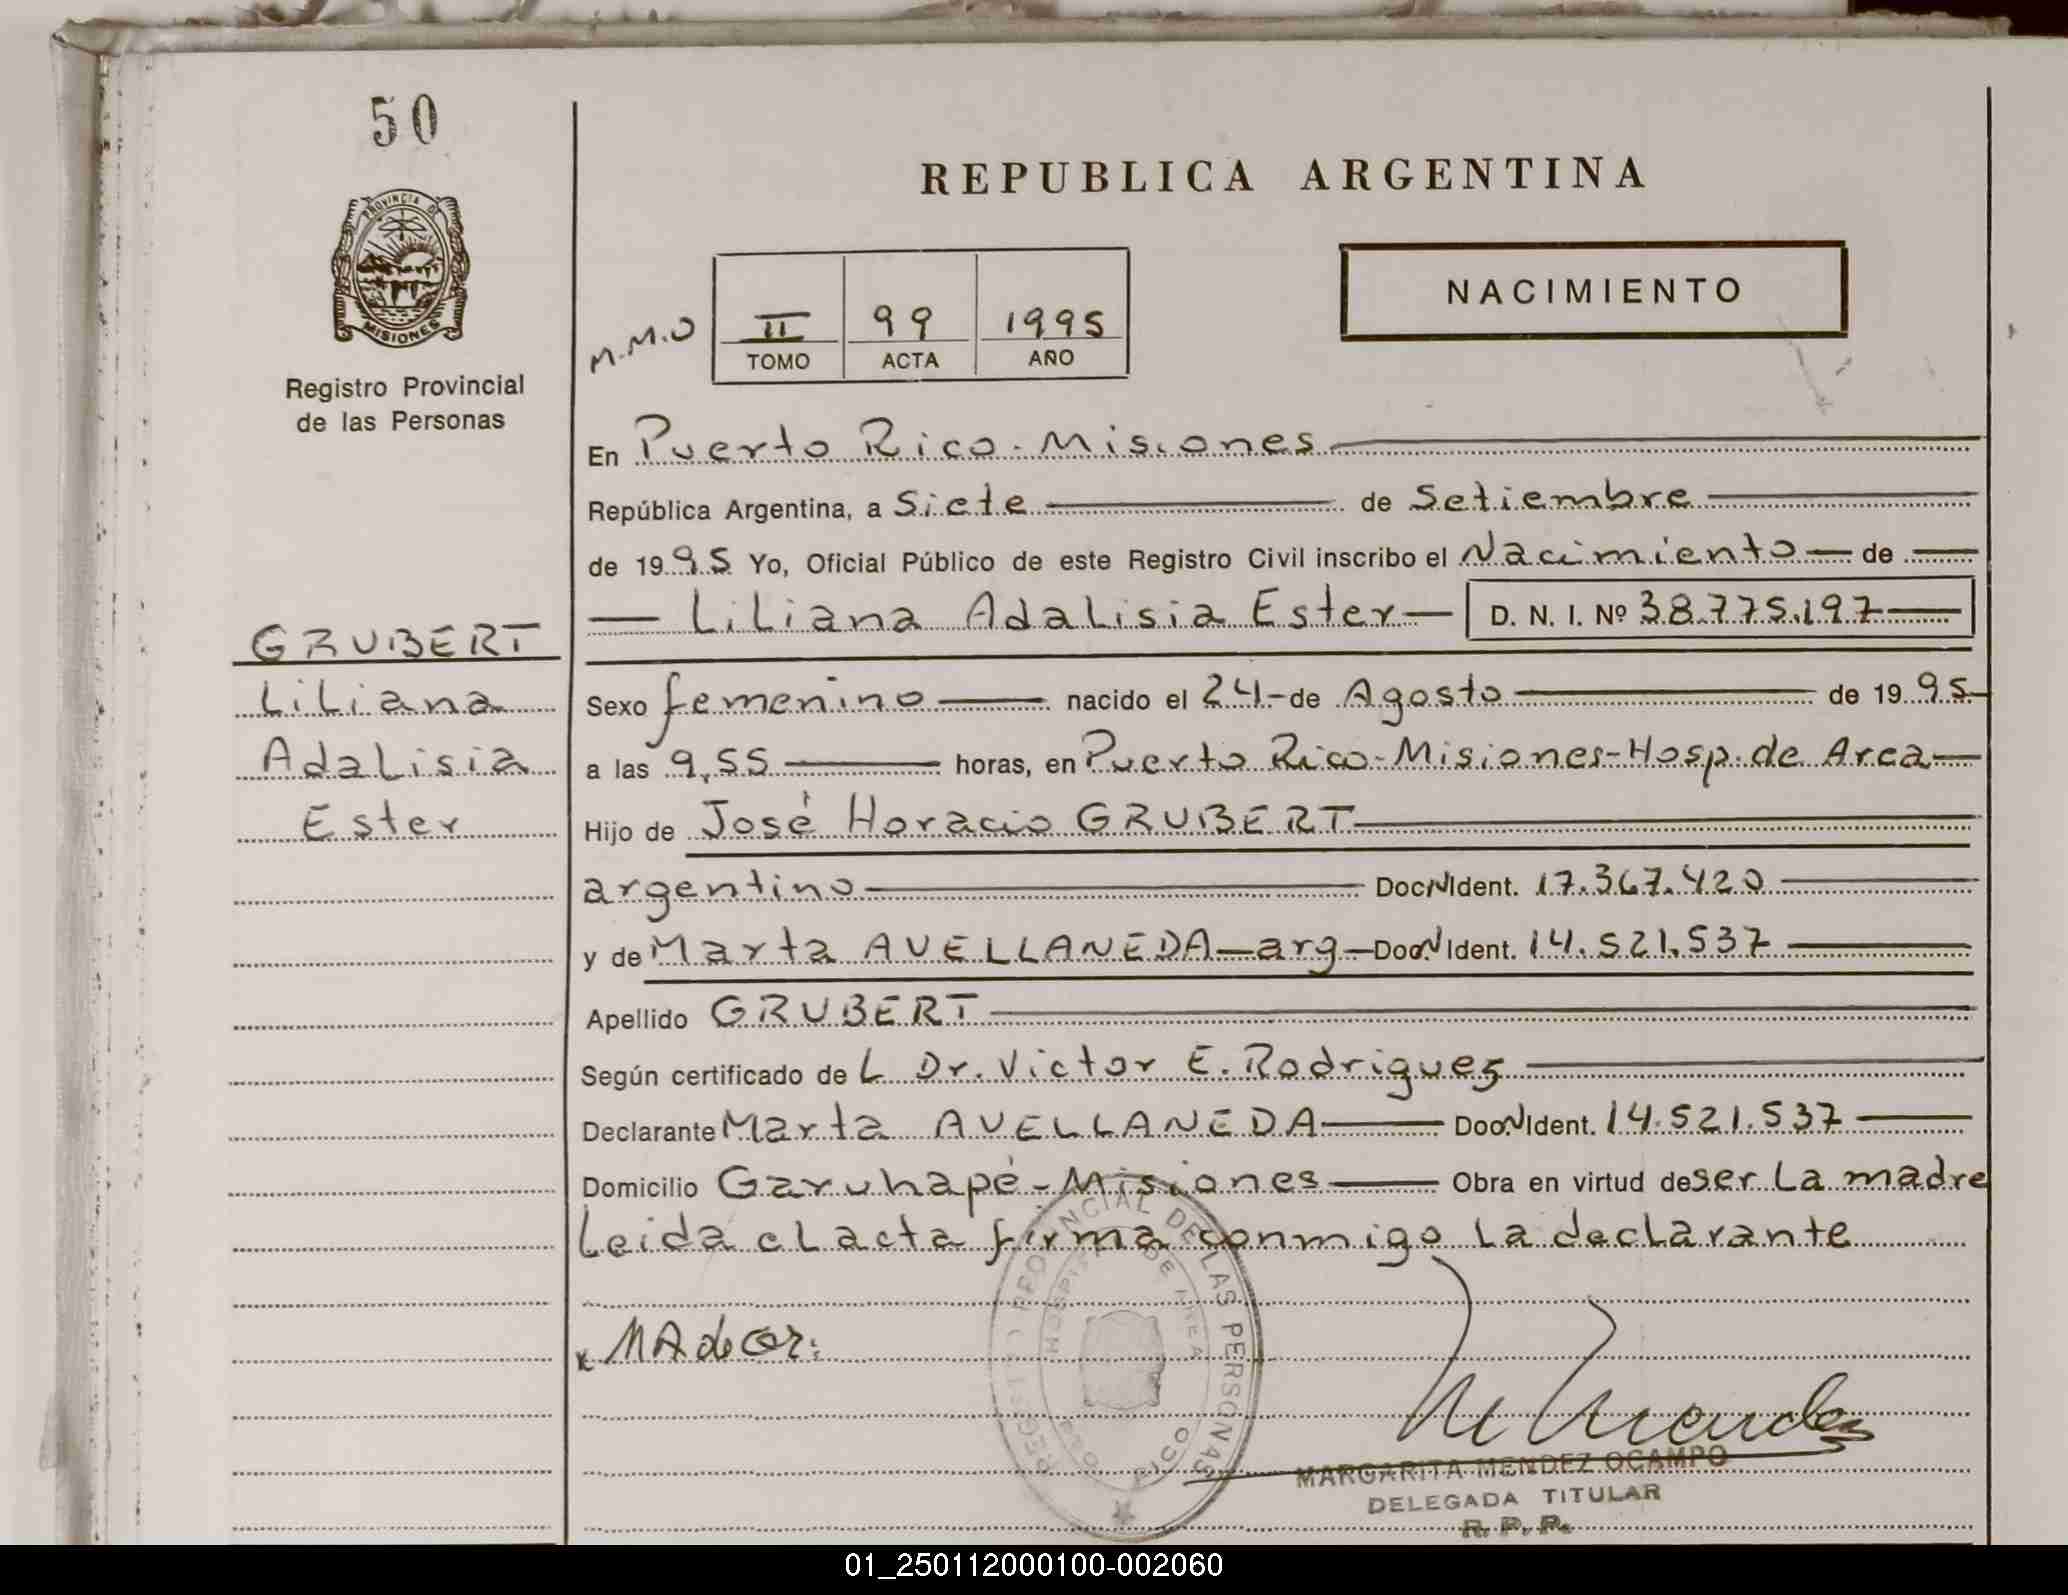 50
REPUBLICA ARGENTINA
PROVINCIA DE
MISIONES
NACIMIENTO
M.M.O
II 99 1995
TOMO ACTA AÑO
Registro Provincial
de las Personas
En Puerto Rico - Misiones
República Argentina, a Siete de Setiembre
de 1995 Yo, Oficial Público de este Registro Civil inscribo el Nacimiento de
Liliana Adalisia Ester D. N. I. Nº 38.775.197
GRUBERT
Liliana
Adalisia
Ester
Sexo femenino nacido el 24 de Agosto de 1995
a las 9,55 horas, en Puerto Rico-Misiones-Hosp. de Area
Hijo de José Horacio GRUBERT
argentino Doc.N.Ident. 17.367.420
y de Marta AVELLANEDA-arg-Doc.N Ident. 14.521.537
Apellido GRUBERT
Según certificado de L Dr. Victor E. Rodriguez
Declarante Marta AVELLANEDA Doc.N Ident. 14.521.537
Domicilio Garuhapé-Misiones Obra en virtud de ser La madre
Leida el acta firma conmigo La declarante
REGISTRO PROVINCIAL DE LAS PERSONAS
HOSPITAL DE AREA
MARGARITA MENDEZ OCAMPO
DELEGADA TITULAR
R. P. P.
01_250112000100-002060